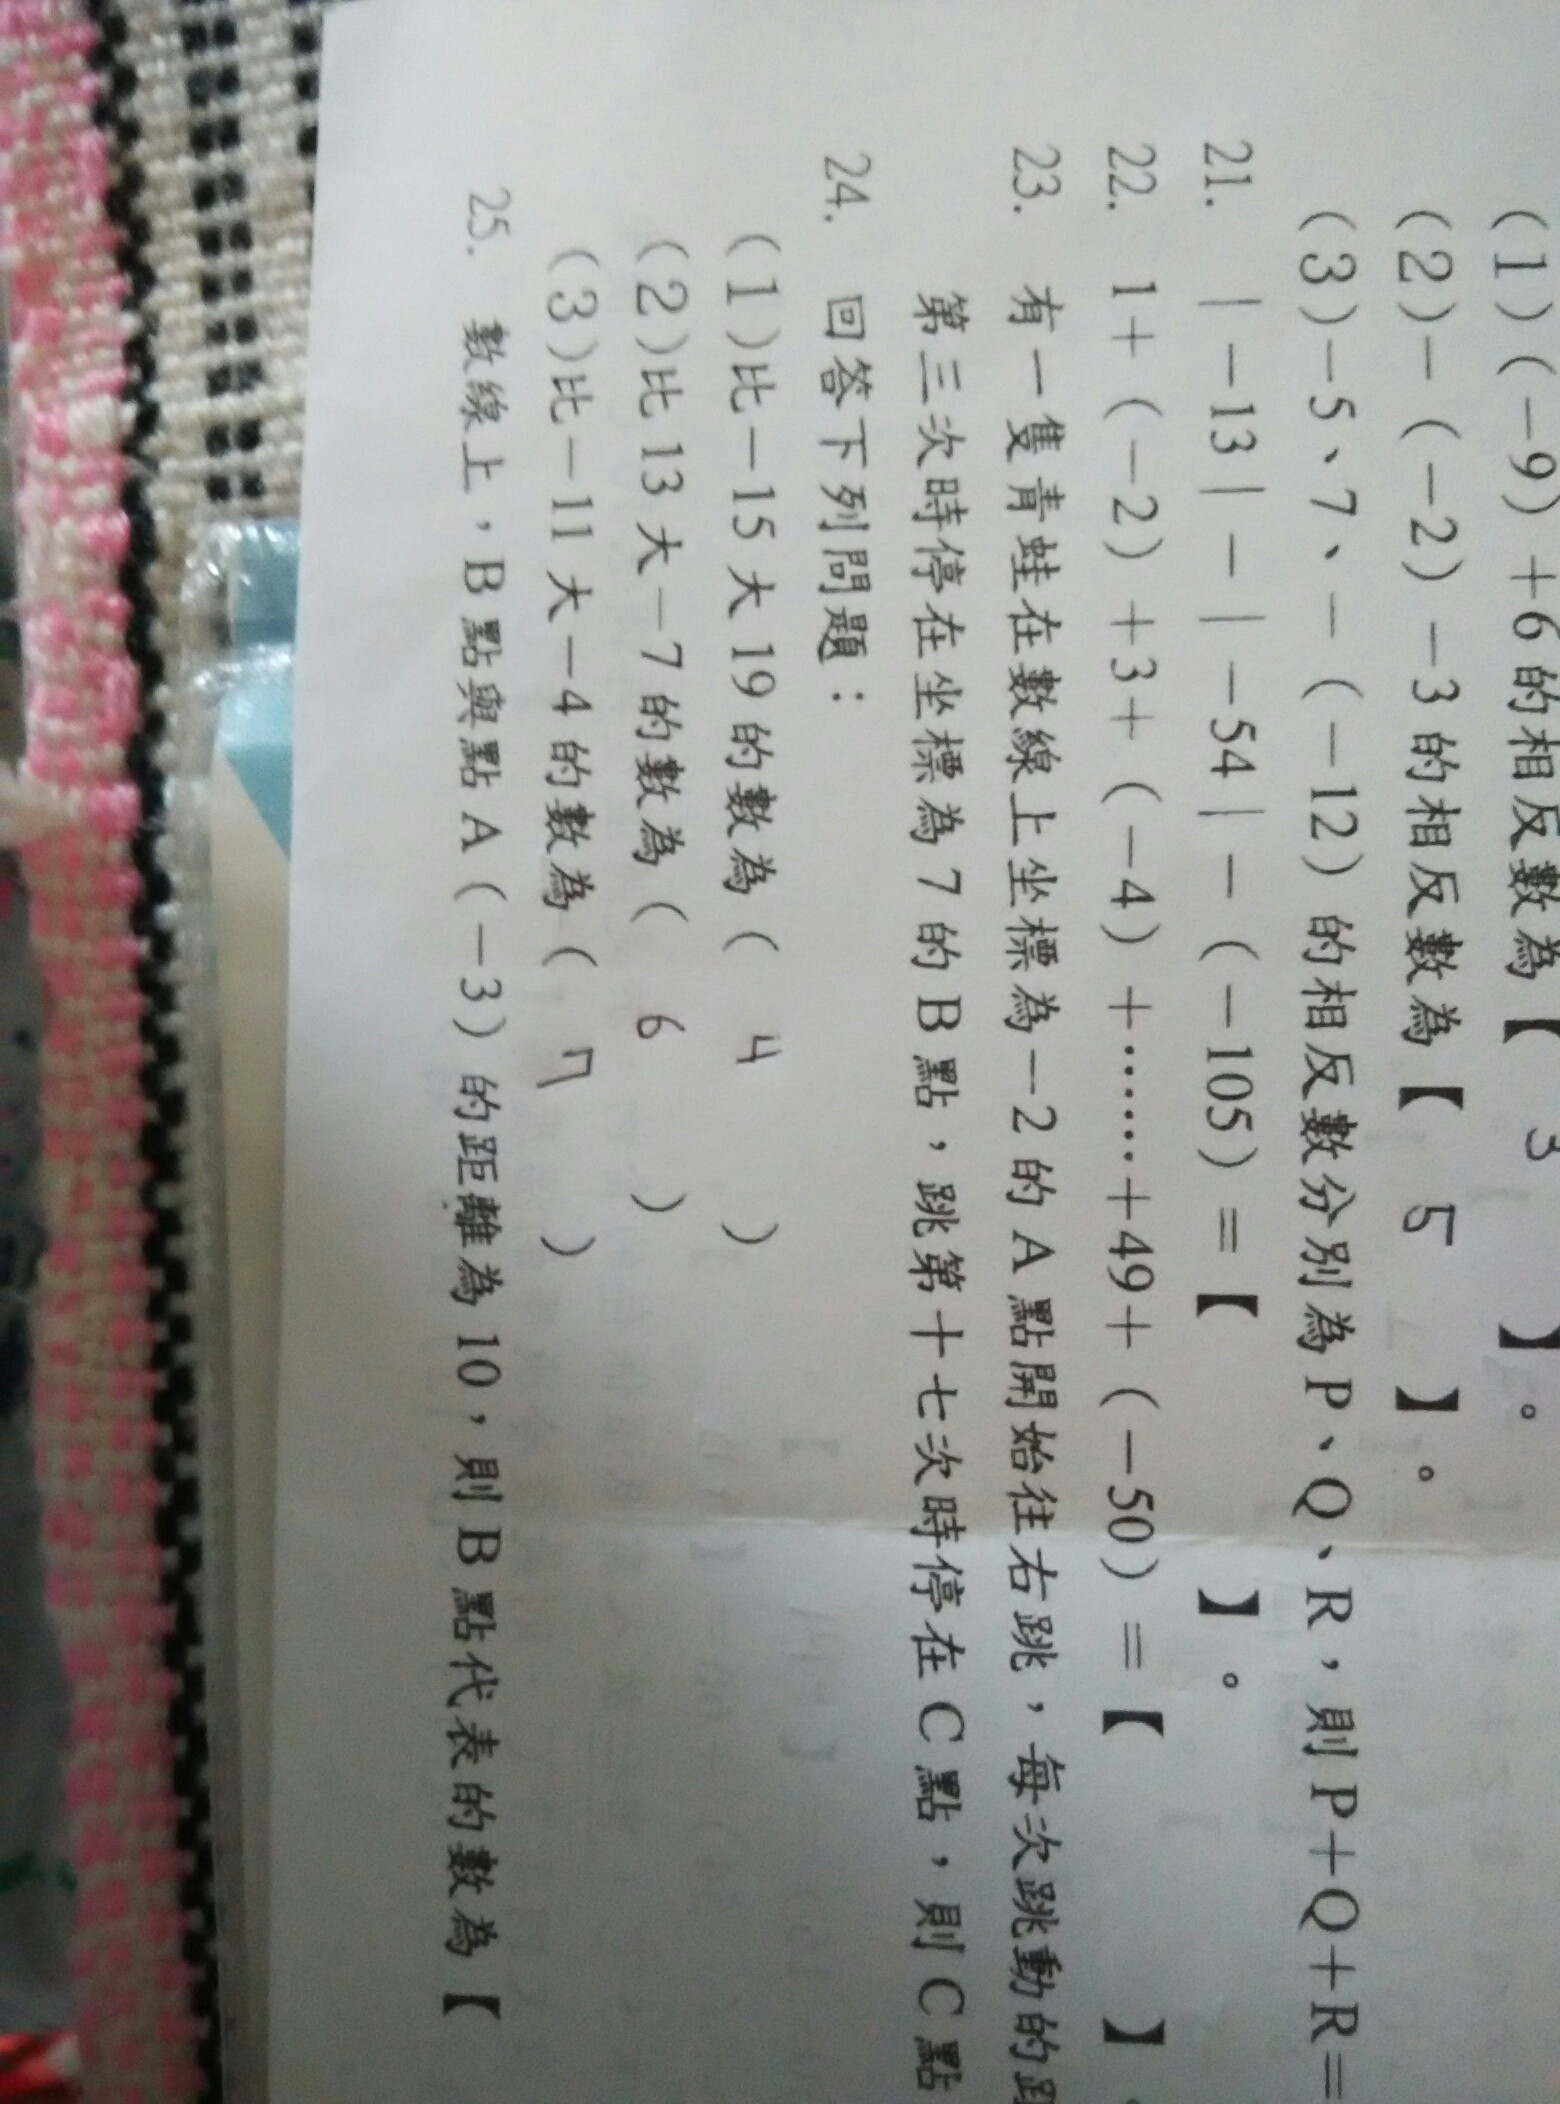 (1)(-9)+6的相反數為【 3 】。
(2)-(-2)-3的相反數為【 5 】。
(3)-5、7、-(-12)的相反數分別為P、Q、R，則P+Q+R=
21. |-13|-|-54|-(-105)=【 】。
22. 1+(-2)+3+(-4)+……+49+(-50)=【 】.
23. 有一隻青蛙在數線上坐標為-2的A點開始往右跳，每次跳動的距
第三次時停在坐標為7的B點，跳第十七次時停在C點，則C點
24. 回答下列問題：
(1)比-15大19的數為( 4 )
(2)比13大-7的數為( 6 )
(3)比-11大-4的數為( 7 )
25. 數線上，B點與點A(-3)的距離為10，則B點代表的數為【